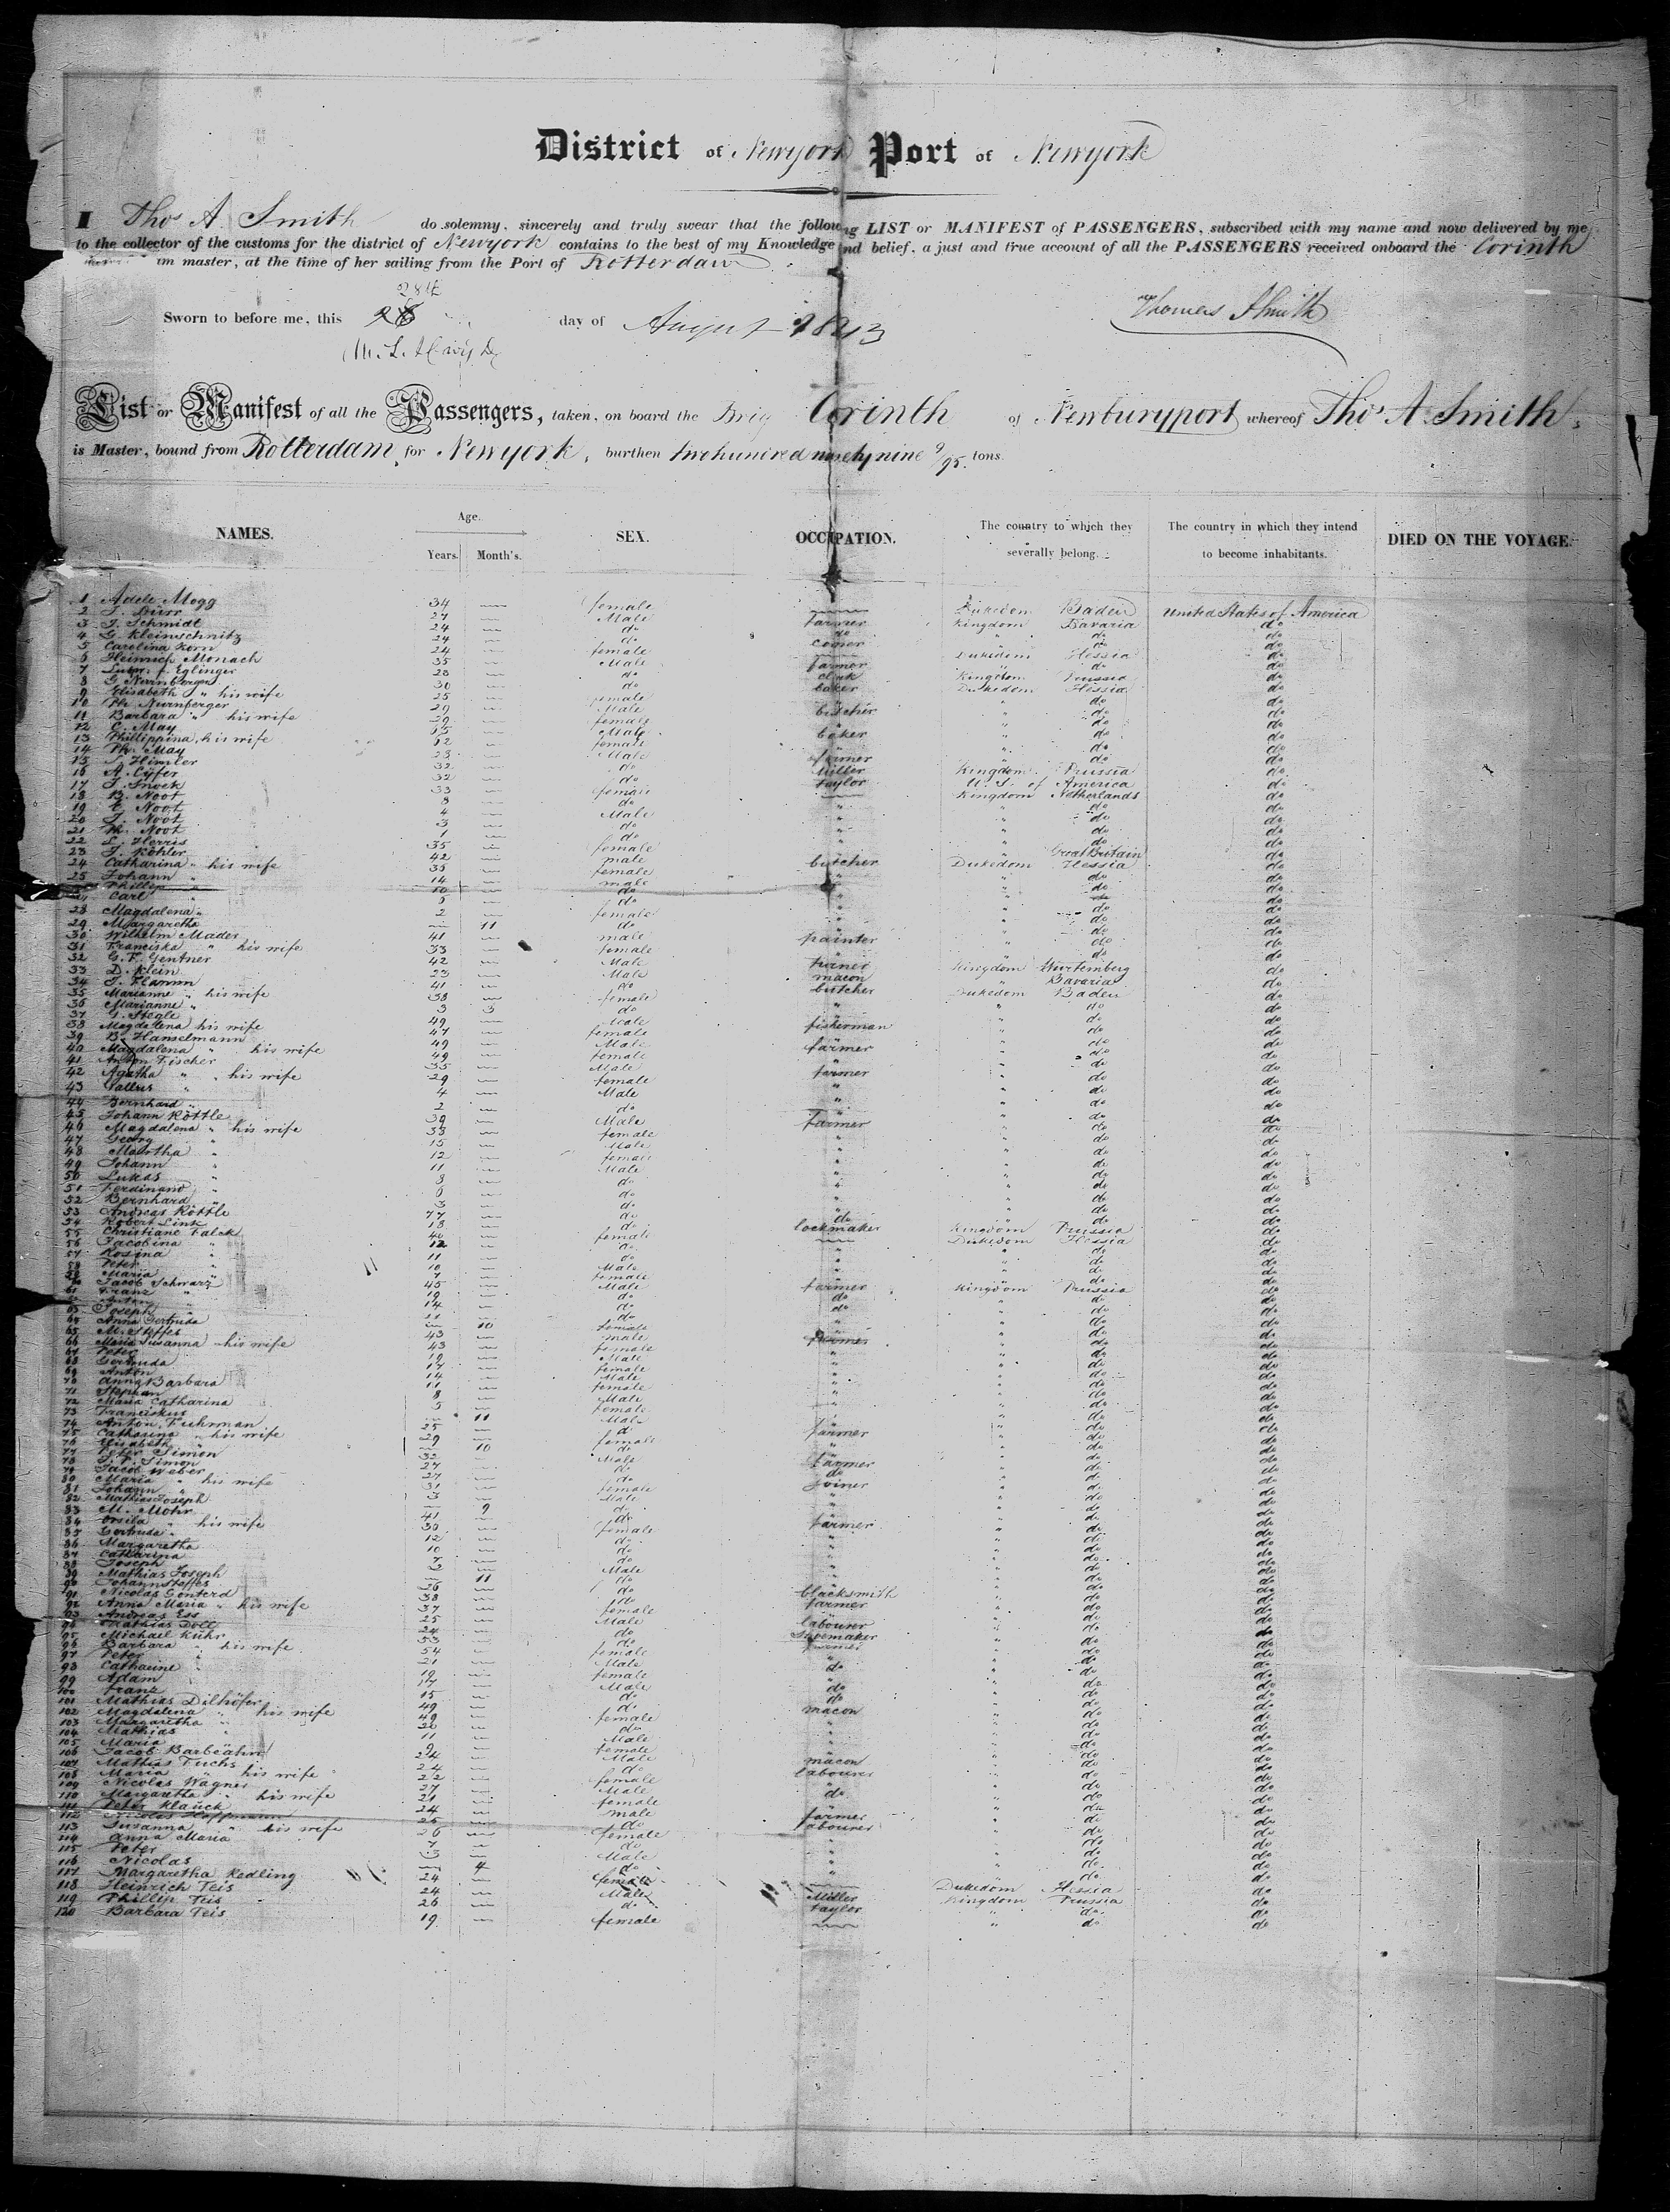 District of Newyork Port of Newyork
I Thos A Smith do solemny, sincerely and truly swear that the following LIST or MANIFEST of PASSENGERS, subscribed with my name and now delivered by me
to the collector of the customs for the district of Newyork contains to the best of my Knowledge and belief, a just and true account of all the PASSENGERS received onboard the Corinth
im master, at the time of her sailing from the Port of Rotterdam
28th
Sworn to before me, this day of August 1843
Thomas A Smith
List or Manifest of all the Passengers, taken, on board the Brig Corinth of Newburyport whereof Thos A Smith
is Master, bound from Rotterdam, for Newyork, burthen twohundred ninety nine 9/95 tons.
NAMES. Age. SEX. OCCUPATION. The country to which they The country in which they intend DIED ON THE VOYAGE.
Years. Month's. severally belong. to become inhabitants.
1 Adele Mogg 34 female Dukedom Baden United States of America
2 J. Dürr 27 Male farmer Kingdom Bavaria do
3 J. Schmidt 24 do do " do do
4 G. Kleinschnitz 24 do " do do
5 Carolina Korn 24 female Dukedom Hessia do
6 Heinrich Monach 35 Male farmer " do do
7 Eglinger 28 do clerk Kingdom Prussia do
8 G. Nurnberger 30 do baker Dukedom Hessia do
9 Elisabeth " his wife 25 female " do do
10 Ph. Nurnferger 29 Male butcher " do do
11 Barbara " his wife 29 female " do do
12 C. May Male baker " do do
13 Phillippina, his wife female " do do
14 Ph. May 28 Male farmer " do do
15 Himler 32 do Miller Kingdom Prussia do
16 A. Cyfer 32 do taylor U. S. of America do
17 J. Snoek 33 female Kingdom Netherlands do
18 B. Noot 8 do " do do
19 Noot 4 Male " do do
20 J. Noot 3 do " do do
21 Noot 1 do " do do
22 Herris 35 female " Great Britain do
23 J. Köhler 42 male butcher Dukedom Hessia do
24 Catharina " his wife 38 female " do do
25 Johann " 14 male " do do
Phillip " 10 do " do do
Carl " do " do do
28 Magdalena " 2 female " do do
29 Margaretha 11 do " do do
30 Wilhelm Mader 41 male painter " do do
31 Franciska " his wife 33 female " do do
32 G. F. Gentner 42 Male turner Kingdom Wurtemburg do
33 D. Klein 23 Male macon " Bavaria do
34 J. Flamm 41 do butcher Dukedom Baden do
35 Marianne " his wife 38 female " do do
36 Marianne " 3 3 do " do do
37 Stegle 49 Male fisherman " do do
38 Magdalena his wife 47 female " do do
39 B. Hanselmann 49 Male farmer " do do
40 Magdalena " his wife 49 female " do do
41 Anton Fischer 35 Male farmer " do do
42 Agatha " his wife 29 female " do do
43 Gallus " 4 Male " do do
44 Bernhard " 2 do " do do
45 Johann Röttle 39 Male farmer " do do
46 Magdalena " his wife 38 female " do do
47 Georg " 15 Male " do do
48 Martha " 12 female " do do
49 Johann " 11 Male " do do
50 Lukas " 8 do " do do
51 Ferdinand " 6 do " do do
52 Bernhard " 3 do " do do
53 Andreas Röttle 77 do do " do do
54 Robert Link 18 do lockmaker Kingdom Prussia do
55 Christiane Falck 40 female Dukedom Hessia do
56 Jacobina " 12 do " do do
57 Rosina " 11 do " do do
58 Peter " 10 Male " do do
59 Maria " 7 female " do do
60 Jacob Schwarz 45 Male farmer Kingdom Prussia do
61 Franz " 19 do do " do do
62 Anton " 14 do do " do do
63 Joseph " 11 do " do do
64 Anna Gertruda 10 female " do do
65 M. Steffes 43 male farmer " do do
66 Maria Susanna his wife 43 female " do do
67 Peter 19 Male " do do
68 Gertruda 17 female " do do
69 Anton 14 Male " do do
70 Anna Barbara 11 female " do do
71 Stephan 8 Male " do do
72 Maria Catharina 5 female " do do
73 Franciskus 11 Male " do do
74 Anton Fuhrman 25 do farmer " do do
75 Catharina " his wife 29 female " do do
76 Elisabeth " 10 do " do do
77 Peter Simon 32 Male farmer " do do
78 Simon 27 do do " do do
79 Jacob Weber 27 do joiner " do do
80 Maria " his wife 31 female " do do
81 Johann " 3 Male " do do
82 Mathias Joseph 9 do " do do
83 M. Mohr 41 do farmer " do do
84 Orsila " his wife 38 female " do do
85 Gertruda " 12 do " do do
86 Margaretha 10 do " do do
87 Catharina 7 do " do do
88 Joseph 2 Male " do do
89 Mathias Joseph 11 do " do do
90 Johann Steffes 26 do blacksmith " do do
91 Nicolas Gonterd 38 do farmer " do do
92 Anna Maria " his wife 37 female " do do
93 Andreas Ess 25 Male labourer " do do
94 Mathias Doll 24 do Shoemaker " do do
95 Michael Kühr 53 do farmer " do do
96 Barbara " his wife 54 female " do do
97 Peter " 21 Male do " do do
98 Catharine " 19 female " do do
99 Adam 17 Male do " do do
100 Franz 15 do do " do do
101 Mathias Dilhöfer 49 do macon " do do
102 Magdalena " his wife 49 female " do do
103 Margaretha " 20 do " do do
104 Mathias " 11 Male " do do
105 Maria 9 female " do do
106 Jacob Barbeahn 24 Male macon " do do
107 Mathias Fuchs 24 do labourer " do do
108 Maria " his wife 22 female " do do
109 Nicolas Wagner 27 Male do " do do
110 Margaretha " his wife 21 female " do do
111 Peter Klauck 24 male farmer " do do
112 Nicolas Hoffmann 25 do labourer " do do
113 Susanna " his wife 26 female " do do
114 Anna Maria 7 do " do do
115 Peter 3 Male " do do
116 Nicolas 4 do " do do
117 Margaretha Kedling 24 female Dukedom Hessia do
118 Heinrich Teis 24 Male Miller Kingdom Prussia do
119 Phillip Teis 26 do taylor " do do
120 Barbara Teis 19 female " do do